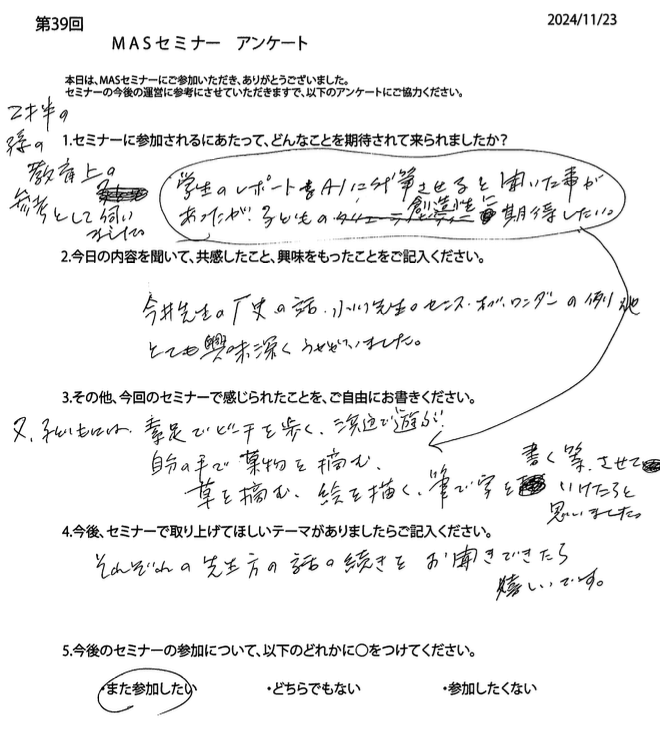 第39回
2024/11/23
MASセミナー アンケート
本日は、MASセミナーにご参加いただき、ありがとうございました。
セミナーの今後の運営に参考にさせていただきますで、以下のアンケートにご協力ください。
2才半の
孫の
教育上の
参考として伺い
ました
1.セミナーに参加されるにあたって、どんなことを期待されて来られましたか?
学生のレポートをAIに代筆させると聞いた事が
あったが、子どもの創造性に期待したい。
2.今日の内容を聞いて、共感したこと、興味をもったことをご記入ください。
今井先生の「史の話、小川先生のセンス・オブ・ワンダーの例他
とても興味深くうかがいました。
3.その他、今回のセミナーで感じられたことを、ご自由にお書きください。
又、子どもには、素足でビーチを歩く、浜辺で遊ぶ、
自分の手で果物を摘む、
草を摘む、絵を描く、筆で字を
書く等、させて
いけたらと
思いました。
4.今後、セミナーで取り上げてほしいテーマがありましたらご記入ください。
それぞれの先生方の話の続きをお聞きできたら
嬉しいです。
5.今後のセミナーの参加について、以下のどれかに〇をつけてください。
・また参加したい ・どちらでもない ・参加したくない